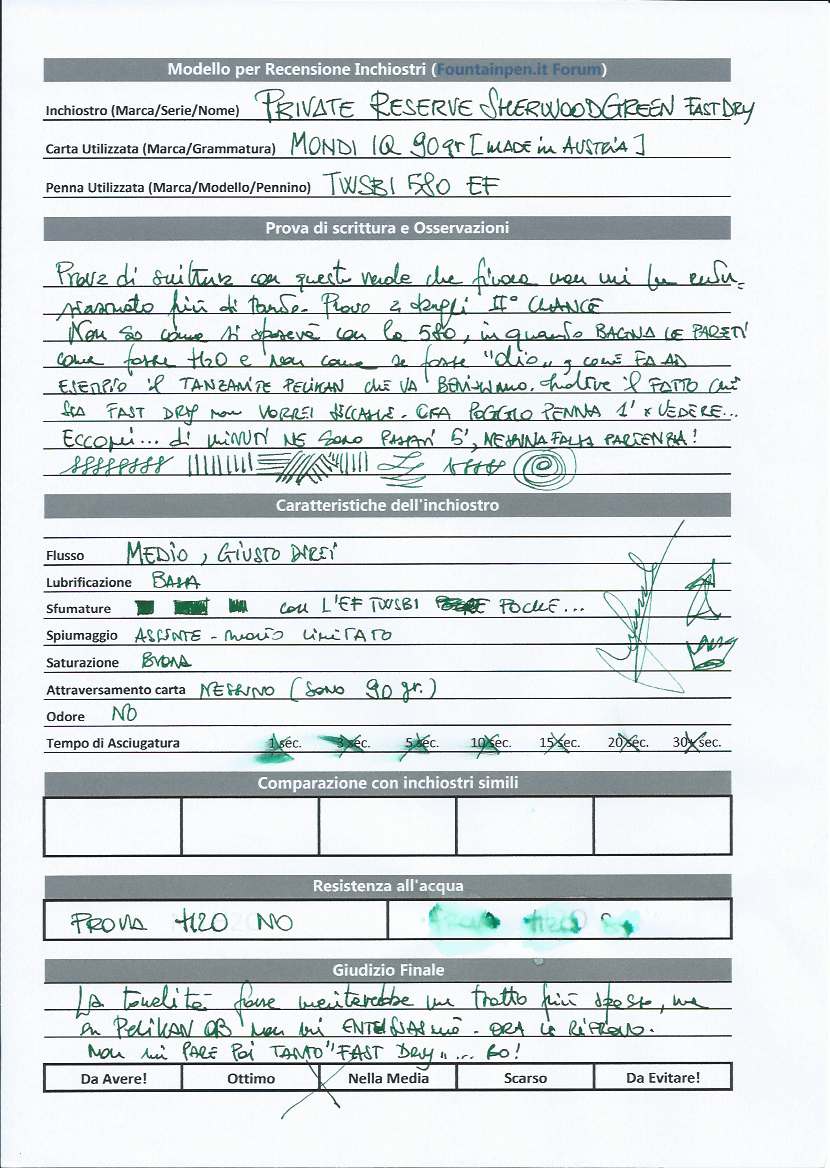 Modello per Recensione Inchiostri (Fountainpen.it Forum)
Inchiostro (Marca/Serie/Nome) PRIVATE RESERVE SHERWOOD GREEN FAST DRY
Carta Utilizzata (Marca/Grammatura) MONDI IQ 90gr [MADE in AUSTRIA]
Penna Utilizzata (Marca/Modello/Pennino) TWSBI 580 EF
Prova di scrittura e Osservazioni
Prova di scrittura con questo verde che finora non mi ha entu-
siasmato più di tanto. Provo a dargli IIº CHANCE
Non so come si sposerà con la 580, in quanto BAGNA LE PARETI
come fosse H2O e non come se fosse "olio", come FA AD
ESEMPIO il TANZANITE PELIKAN che VA BENISSIMO. Inoltre il FATTO che
SIA FAST DRY non VORREI SECCASSE. ORA POGGIO PENNA 1' x VEDERE...
Eccomi... di MINUTI NE SONO PASSATI 5', NESSUNA FALSA PARTENZA!
Caratteristiche dell'inchiostro
Flusso MEDIO, GIUSTO DIREI
Lubrificazione BASSA
Sfumature con L'EF TWSBI POCHE...
Spiumaggio ASSENTE - molto LIMITATO
Saturazione BUONA
Attraversamento carta NESSUNO (SONO 90 gr.)
Odore NO
Tempo di Asciugatura 1 sec. 3 sec. 5 sec. 10 sec. 15 sec. 20 sec. 30 sec.
Comparazione con inchiostri simili
Resistenza all'acqua
PROVA H2O NO PROVA H2O SI
Giudizio Finale
LA tonalità forse meriterebbe un tratto più spesso, ma
su PELIKAN OB non mi ENTUSIASMÒ - ORA LO RIPROVO.
NON mi PARE POI TANTO "FAST DRY"... BO!
Da Avere! Ottimo Nella Media Scarso Da Evitare!